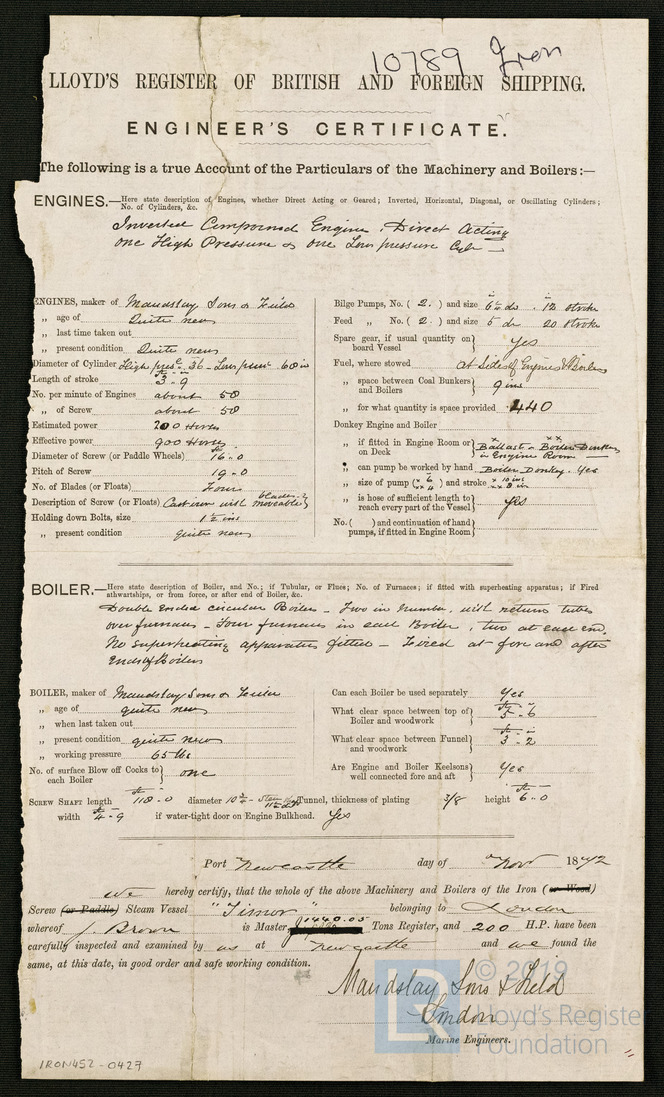 10789 Iron
LLOYD'S REGISTER OF BRITISH AND FOREIGN SHIPPING.
ENGINEER'S CERTIFICATE.
The following is a true Account of the Particulars of the Machinery and Boilers:—
ENGINES.—Here state description of Engines, whether Direct Acting or Geared; Inverted, Horizontal, Diagonal, or Oscillating Cylinders;
No. of Cylinders, &c.
Inverted Compound Engine, Direct Acting
one High Pressure & one Low pressure Cylr
ENGINES, maker of Maudslay Sons & Field
„ age of Quite new
„ last time taken out
„ present condition Quite new
Diameter of Cylinder High presre 36 - Low pressre 68 in
Length of stroke 3 - 9
No. per minute of Engines about 58
„ of Screw about 58
Estimated power 200 Horses
Effective power 900 Horses
Diameter of Screw (or Paddle Wheels) 16 - 0
Pitch of Screw 19 - 0
No. of Blades (or Floats) Four
Description of Screw (or Floats) Cast iron with moveable blades
Holding down Bolts, size 1½ ins
„ present condition quite new
Bilge Pumps, No. ( 2. ) and size 6½ dr . 12 stroke
Feed „ No. ( 2. ) and size 5 dr 20 stroke
Spare gear, if usual quantity on board Vessel } Yes
Fuel, where stowed at Sides of Engines & Boilers
„ space between Coal Bunkers and Boilers } 9 ins
„ for what quantity is space provided 440
Donkey Engine and Boiler
„ if fitted in Engine Room or on Deck } Ballast & Boiler Donkeys in Engine Room
„ can pump be worked by hand Boiler Donkey. Yes
„ size of pump ( x 6 xx 4 ) and stroke x 10 ins xx 8 in
„ is hose of sufficient length to reach every part of the Vessel } Yes
No. ( ) and continuation of hand pumps, if fitted in Engine Room }
BOILER.—Here state description of Boiler, and No.; if Tubular, or Flues; No. of Furnaces; if fitted with superheating apparatus; if Fired
athwartships, or from force, or after end of Boiler, &c.
Double Ended circular Boilers - Two in number, with return tubes
over furnaces - Four furnaces in each Boiler, two at each end.
No superheating apparatus fitted - Fired at fore and after
Ends of Boilers
BOILER, maker of Maudslay Sons & Field
„ age of quite new
„ when last taken out
„ present condition quite new
„ working pressure 65 lbs
No. of surface Blow off Cocks to each Boiler } one
Can each Boiler be used separately Yes
What clear space between top of Boiler and woodwork } ft in 5 - 6
What clear space between Funnel and woodwork } ft in 3 - 2
Are Engine and Boiler Keelsons well connected fore and aft } Yes
SCREW SHAFT length ft 118 - 0 diameter 10¾ - Stern Tunnel, thickness of plating 3/8 height ft 6 - 0
width ft 4 - 9 if water-tight door on Engine Bulkhead. Yes
Port Newcastle day of Nov 1872
We hereby certify, that the whole of the above Machinery and Boilers of the Iron (or Wood)
Screw (or Paddle) Steam Vessel "Timor" belonging to London
whereof J. Brown is Master, 1440.05 Tons Register, and 200 H.P. have been
carefully inspected and examined by us at Newcastle and we found the
same, at this date, in good order and safe working condition.
Maudslay Sons & Field
London
Marine Engineers.
IRON452-0427
© 2019
Lloyd's Register
Foundation
LR